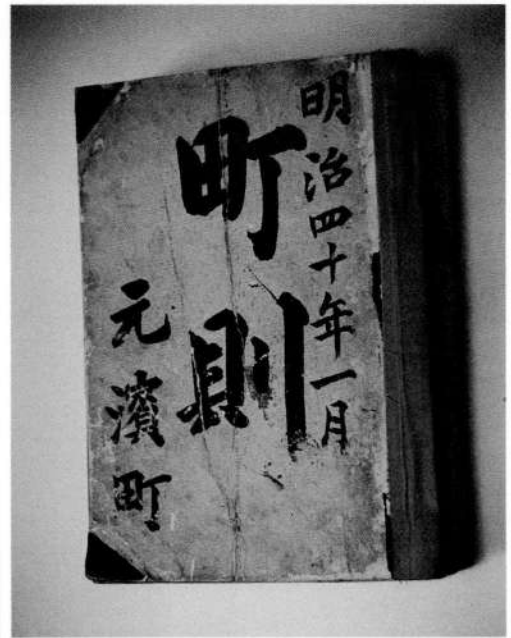 明治四十年一月
町則
元濱町